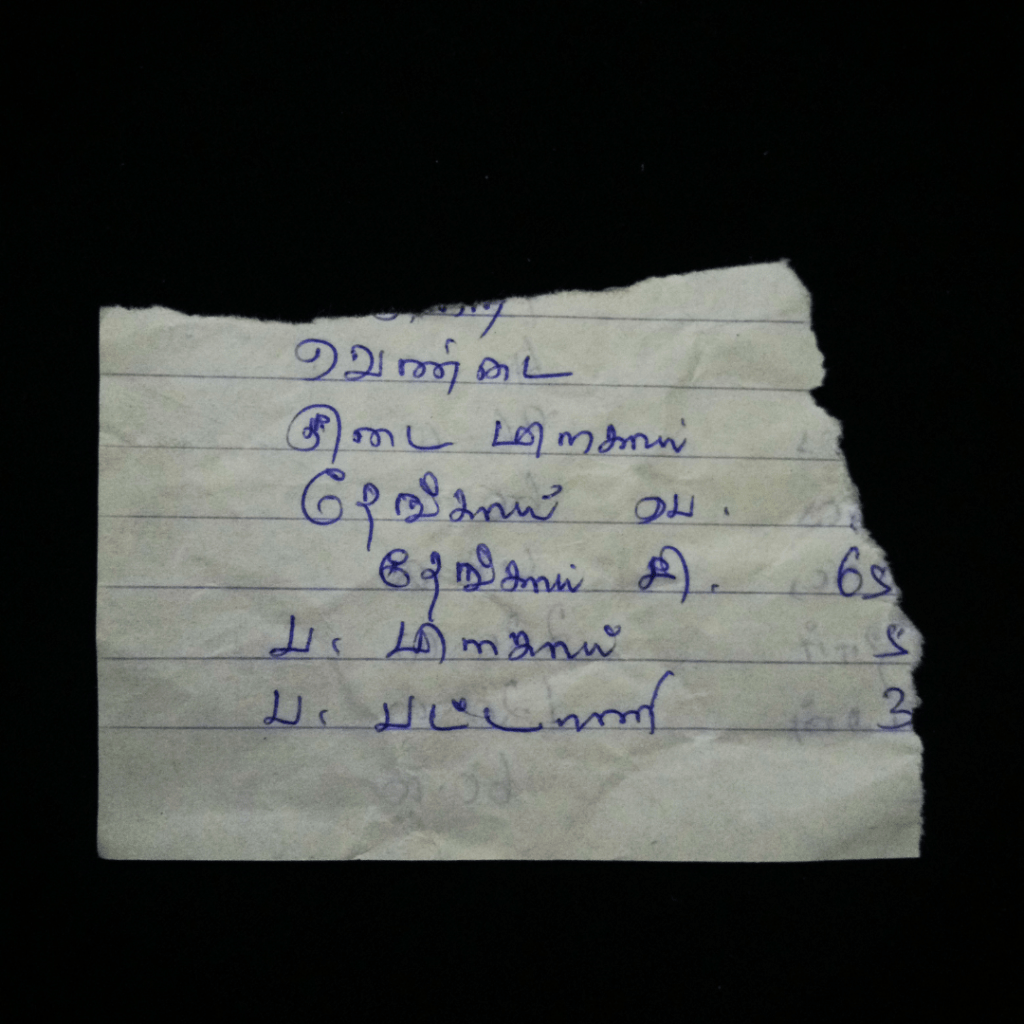 வெண்டை
குடை மிளகாய்
தேங்காய் பெ.
தேங்காய் சி. 65
ப. மிளகாய் 5
ப. பட்டாணி 3